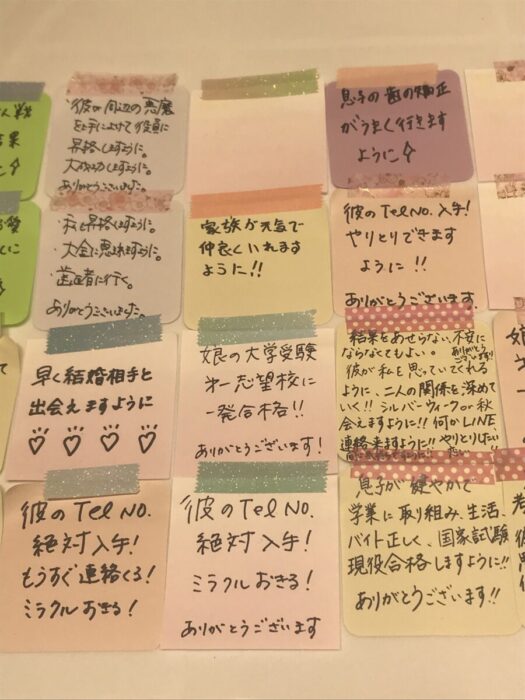 人戦
結果
彼の周辺の悪魔
を手によけて役員に
昇格しますように。
大成功しますように。
ありがとうございました。
息子の歯の矯正
がうまく行きます
ように
・私も昇格しますように。
・大金に恵まれますように。
・歯医者に行く。
ありがとうございました。
家族が元気で
仲良くいれます
ように!!
彼のTel NO. 入手!
やりとりできます
ように!!
ありがとうございます.
早く結婚相手と
出会えますように
娘の大学受験
第一志望校に
一発合格!!
ありがとうございます!
結果をあせらない、不安に
ならなくてもよい。
彼が私を思っていてくれる
ように、二人の関係を深めて
いく!! シルバーウィーク or 秋
会えますように!! 何かLINE
連絡来ますように!! やりとりしたい
彼のTel NO.
絶対入手!
もうすぐ連絡くる!
ミラクルおきる!
彼のTel NO.
絶対入手!
ミラクルおきる!
ありがとうございます
息子が健やかで
学業に取り組み、生活、
バイト正しく、国家試験
現役合格しますように!!
ありがとうございます!!